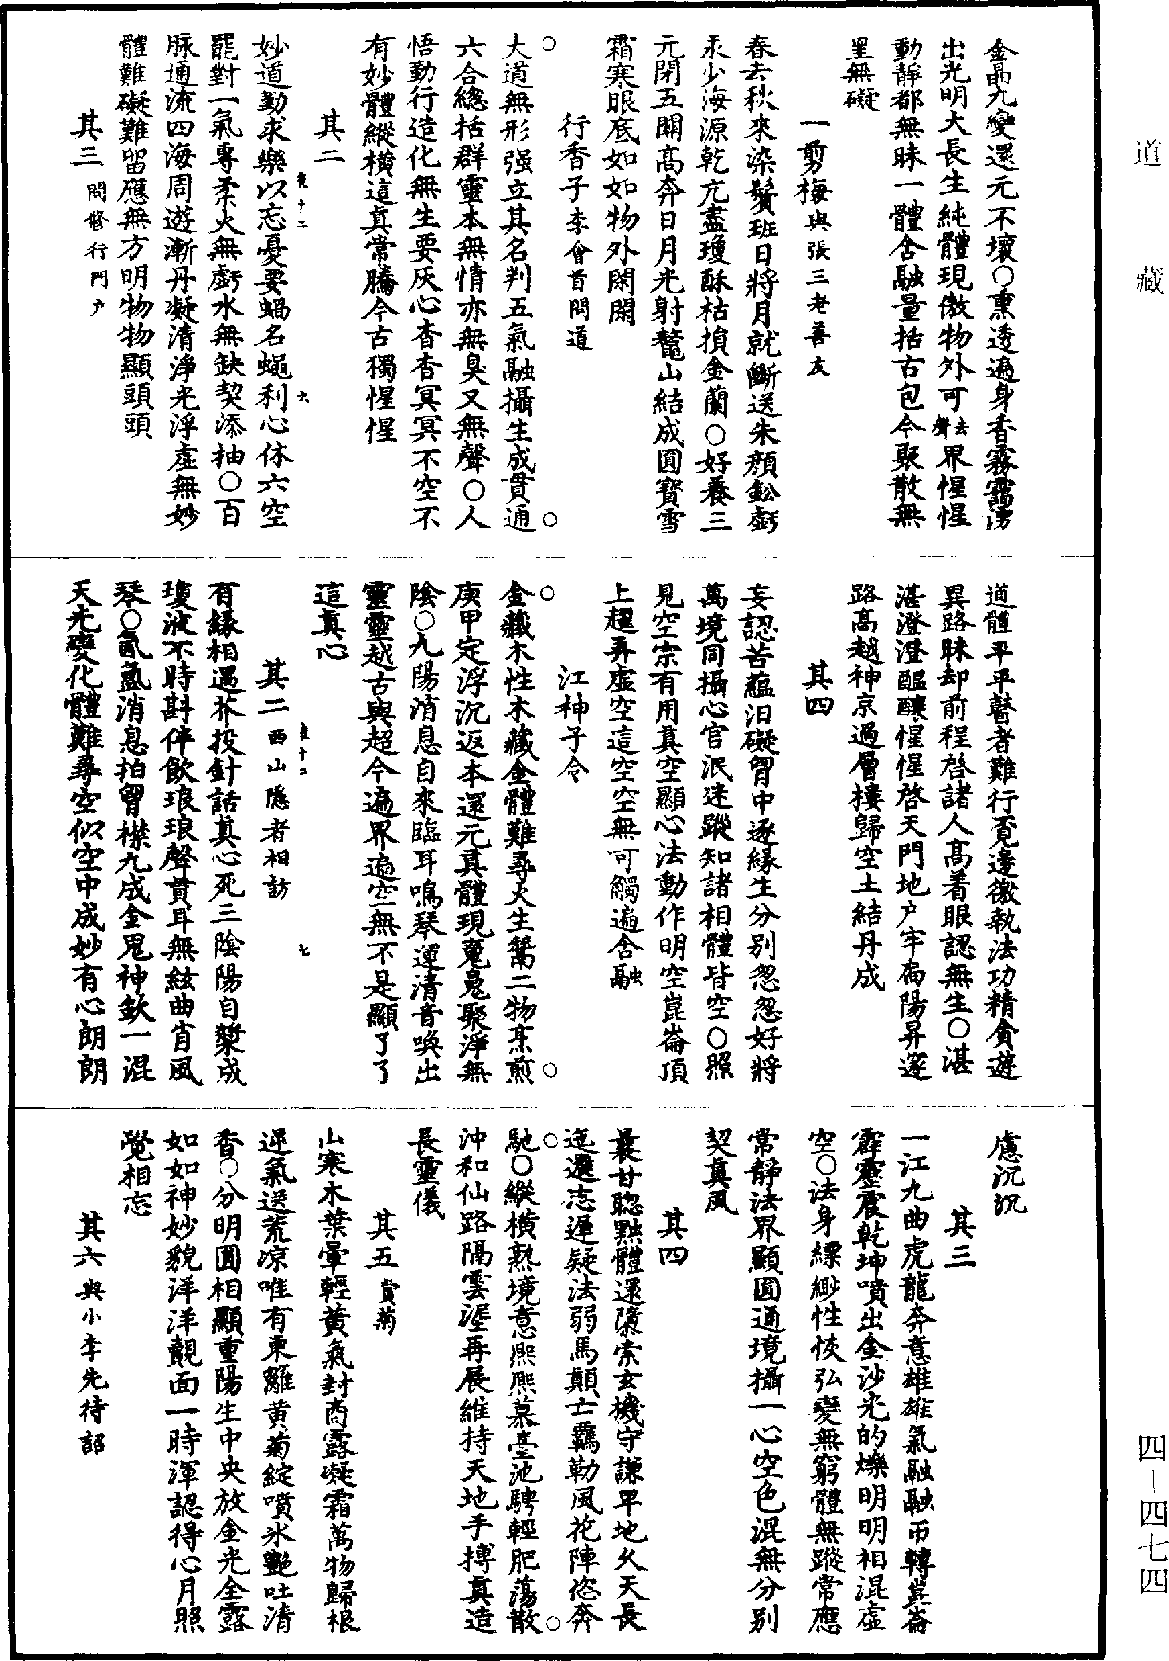 金晶九變還元不壞○熏透遍身香霧靄湧
出光明大長生純體現傲物外可去聲界惺惺
動靜都無昧一體含融量括古包今聚散無
罣無礙
一剪梅與張三老善友
春去秋來染鬢班日將月就斷送朱顏鉛虧
汞少海源乾亢盡瓊酥枯損金蘭○好養三
元閉五關高奔日月光射鼇山結成圓寶雪
霜寒眼底如如物外閑閑
行香子李會首問道
大道無形强立其名判五氣融攝生成貫通
六合總括群靈本無情亦無臭又無聲○人
悟動行造化無生要灰心杳杳冥冥不空不
有妙體縱橫這真常騰今古獨惺惺
其二
妙道勤求樂以忘憂要蝸名蠅利心休六空
罷對一氣專柔火無虧水無缺契添抽○百
脉通流四海周遊漸丹凝清淨光浮虛無妙
體難礙難留應無方明物物顯頭頭
其三問修行門户
道體平平瞽者難行覓邊徼執法功精貪遊
異路昧却前程啓諸人高着眼認無生○湛
湛澄澄醖釀惺惺啓天門地户牢扃陽昇遂
路高越神京過層樓歸空土結丹成
其四
妄認苦蘊汩礙胷中逐緣生分别忽忽好將
萬境同攝心官泯迷蹤知諸相體皆空○照
見空宗有用真空顯心法動作明空崑崙頂
上趯弄虛空這空空無可觸遍含融
江神子令
金藏木性木藏金體難尋火生鶯二物烹煎
庚甲定浮沉返本還元真體現䰟㲋聚淨無
陰○九陽消息自來臨耳鳴琴運清音喚出
靈靈越古與超今遍界遍空無不是顯了了
這真心
其二西山隱者相訪
有緣相遇芥投針話真心死三陰陽自漿成
瓊液不時斟倅飲琅琅聲貫耳無絃曲肯風
琴○氤氳消息拍胷襟九成金鬼神欽一混
天光變化體難尋空似空中成妙有心朗朗
慮沉沉
其三
一江九曲虎龍奔意雄雄氣融融帀轉崑崙
霹靂震乾坤噴出金沙光的爍明明相混虛
空○法身縹緲性恢弘變無窮體無蹤常應
常靜法界顯圓通境攝一心空色混無分别
契真風
其四
最甘聰黜體還隳索玄機守謙卑地久天長
迤邐志遲疑法弱馬顛亡羈勒風花陣恣奔
馳○縱橫熟境意熙熙慕臺池騁輕肥蕩散
沖和仙路隔雲逕再展維持天地手摶真造
長靈儀
其五賞菊
山寒木葉暈輕黄氣封商露凝霜萬物歸根
逆氣送荒凉唯有東籬黄菊綻噴氷艷吐清
香○分明圓相顯重陽生中央放金光全露
如如神妙貌洋洋覿面一時渾認得心月照
覺相忘
其六與小李先待詔
道藏
四—四七四